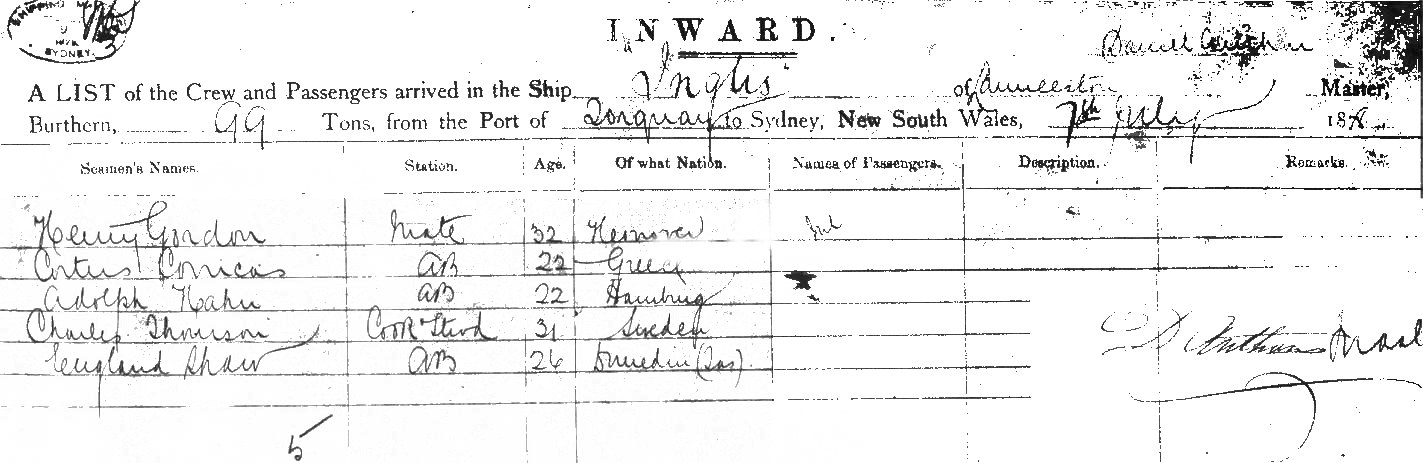 SHIPPING
SYDNEY.
INWARD.
A LIST of the Crew and Passengers arrived in the Ship Inglis of Launceston Master,
Burthern, 99 Tons, from the Port of Torquay to Sydney, New South Wales, 7th July 187
Seamen's Names. Station. Age. Of what Nation. Names of Passengers. Description. Remarks.
Henry Gordon Mate 32 Hanover
AB 22 Greece
Adolph Hahn AB 22 Hamburg
Charles Thomson Cook Stwd 31 Sweden
England Shaw AB 26
5